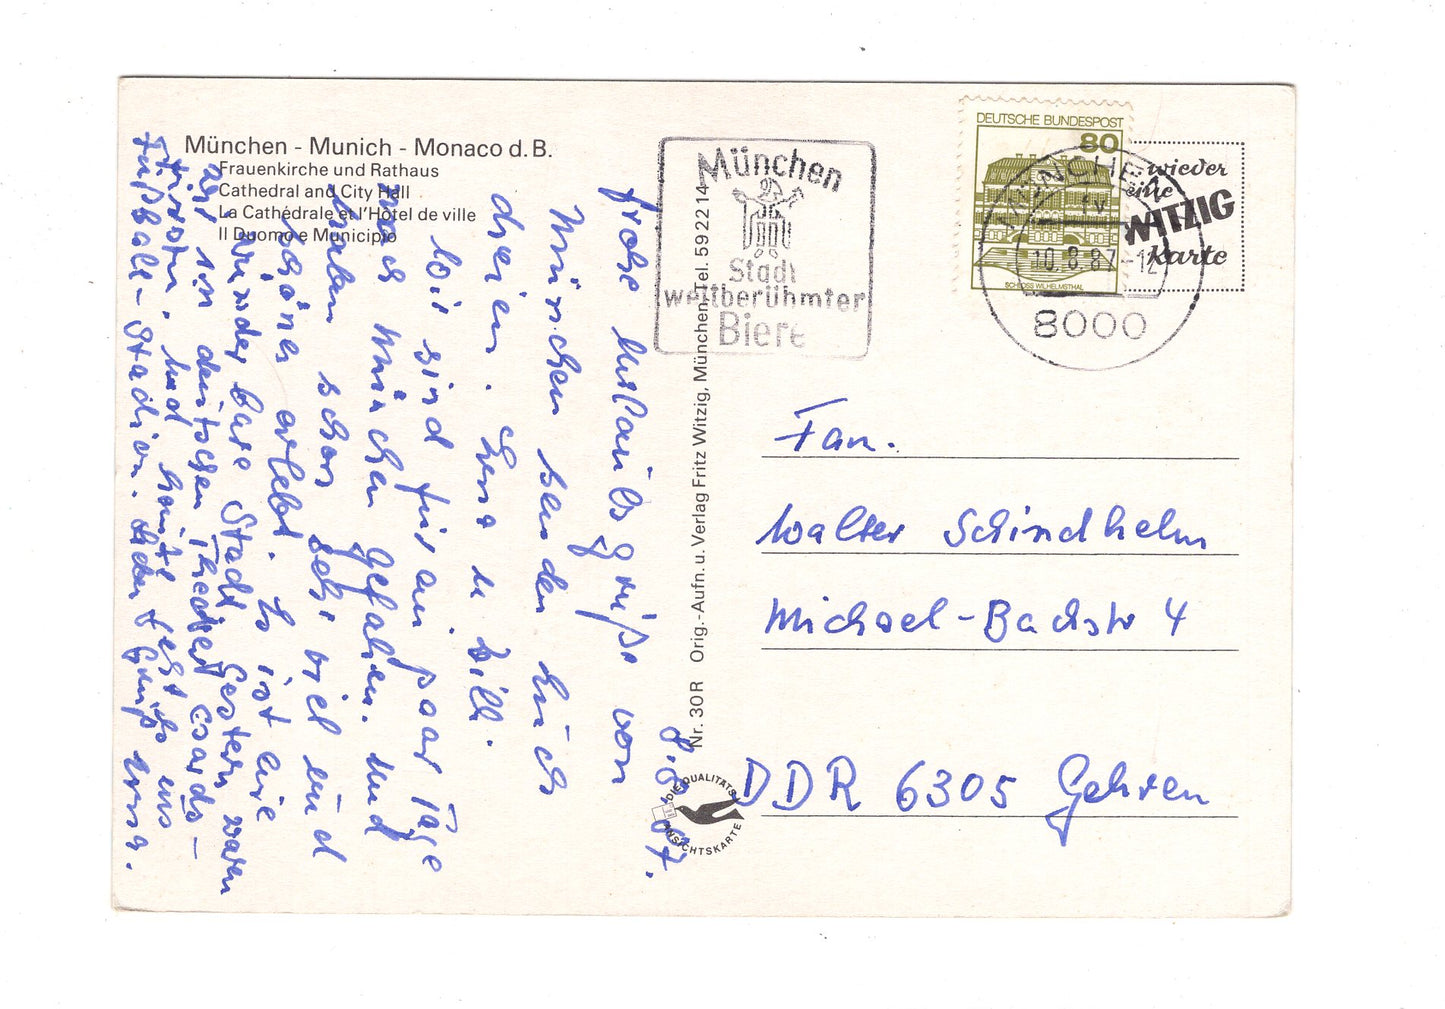 München - Munich - Monaco d. B.
Frauenkirche und Rathaus
Cathedral and City Hall
La Cathédrale et l'Hôtel de ville
Il Duomo e Municipio
München
Stadt
weltberühmter
Biere
DEUTSCHE BUNDESPOST
80
SCHLOSS WILHELMSTHAL
MÜNCHEN
fv
10.8.87-12
8000
wieder
eine
WITZIG
Karte
8.8.87.
Frohe Urlaubsgrüße von
München senden Euch
Lena u. Willi.
Wir sind für ein paar Tage
nach München gefahren. Und
haben schon sehr viel und
schönes erlebt. Es ist eine
wunderbare Stadt. Gestern waren
wir im deutschen Theater Csards-
fürstin, und heute geht's ins
Fußball-Stadion. Gruß
Nr. 30 R Orig.-Aufn. u. Verlag Fritz Witzig, München, Tel. 59 22 14
DIE QUALITÄTS
ANSICHTSKARTE
Fam.
Walter Schindhelm
Michael-Bachstr 4
DDR 6305 Gehren